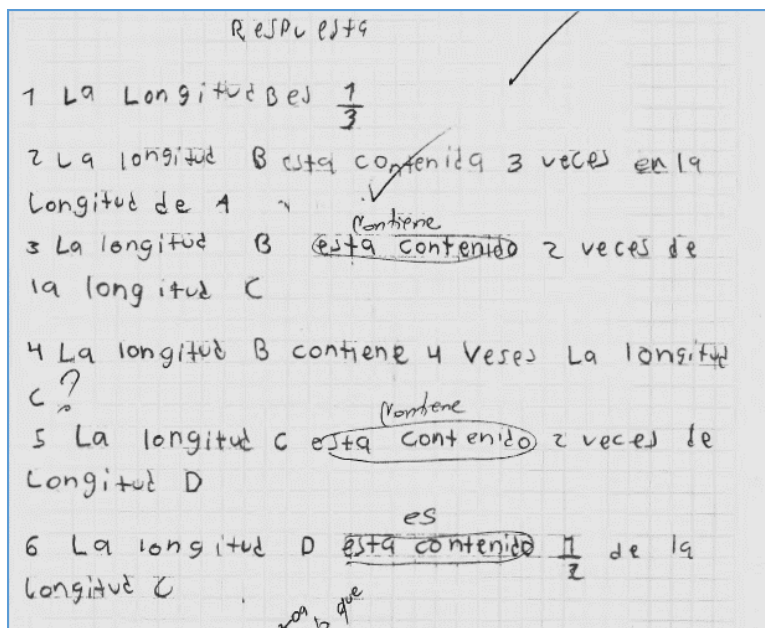 Respuesta
1 La Longitud B es 1/3
2 La longitud B esta contenida 3 veces en la
Longitud de A
Contiene
3 La longitud B esta contenido 2 veces de
la longitud C
4 La longitud B contiene 4 Veses La longitud
C ?
Contiene
5 La longitud C esta contenido 2 veces de
Longitud D
es
6 La longitud D esta contenido 1/2 de la
Longitud C
que